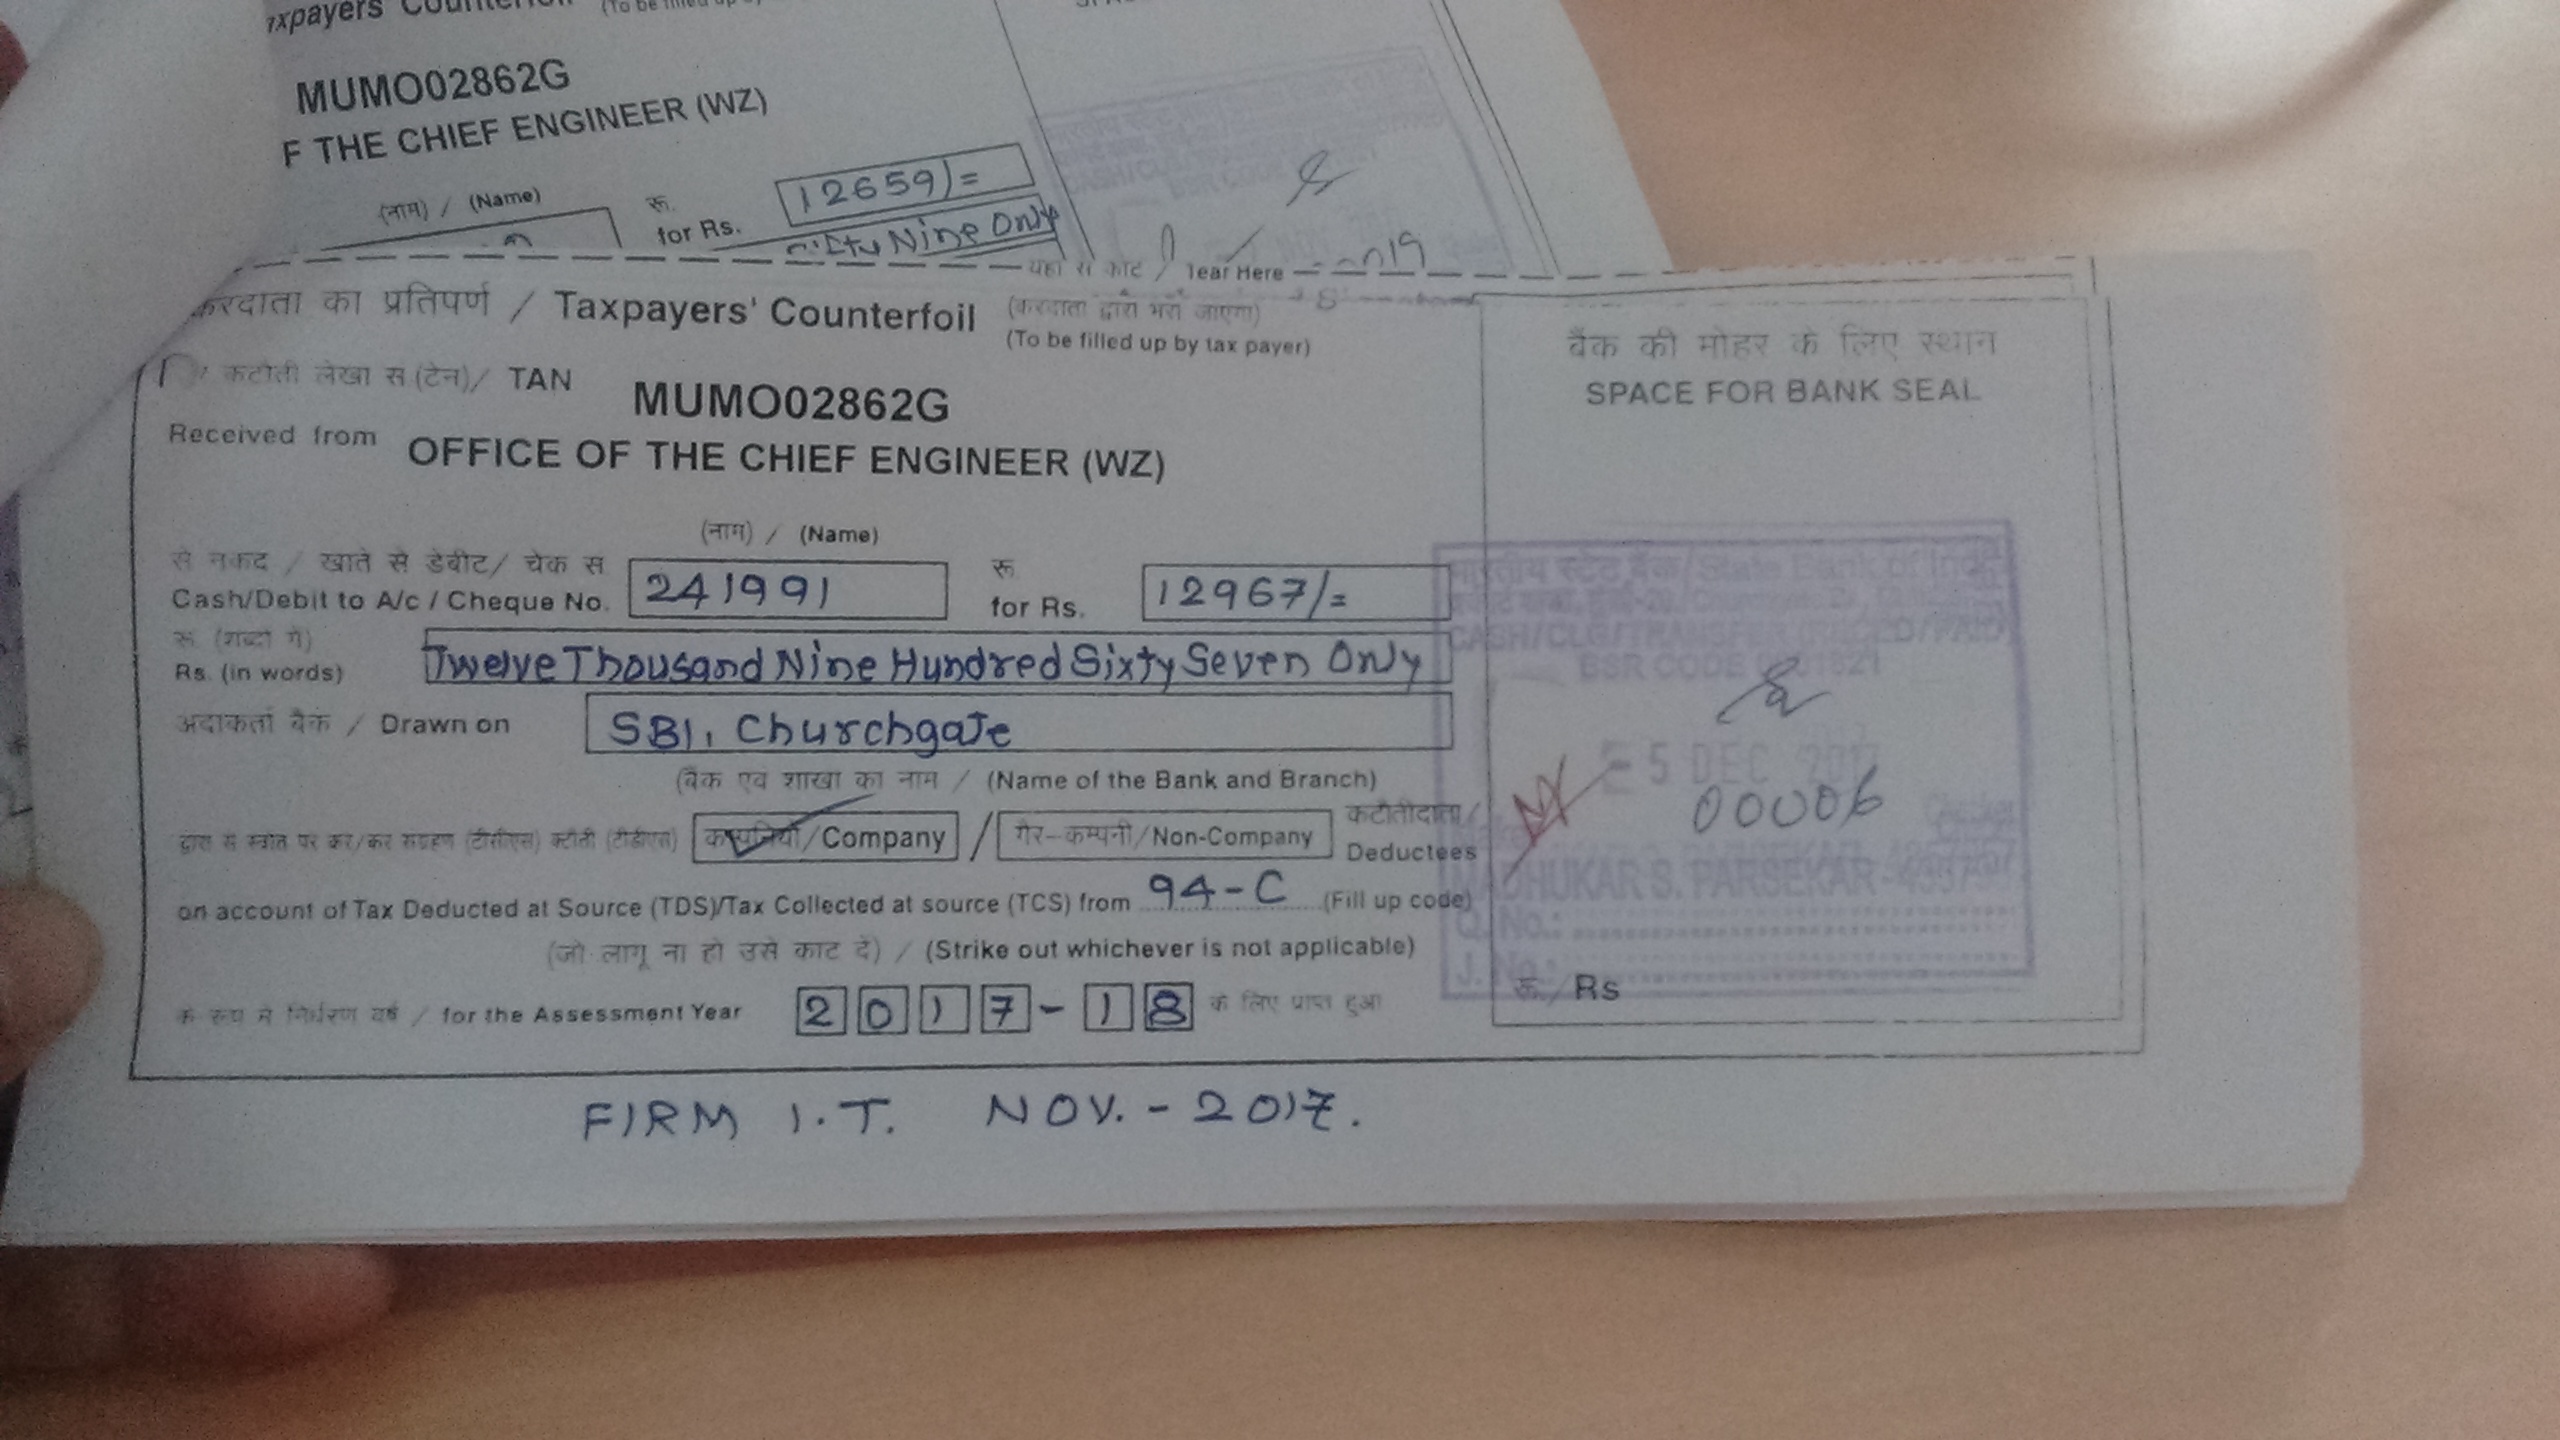 Taxpayers' Counterfoil
MUMO02862G
F THE CHIEF ENGINEER (WZ)
(नाम) / (Name)
रू.
for Rs. 12659/=
Fifty Nine Only
यहां से काटें / Tear Here
करदाता का प्रतिपर्ण / Taxpayers' Counterfoil (करदाता द्वारा भरा जाएगा)
(To be filled up by tax payer)
कटौती लेखा स (टेन)/ TAN MUMO02862G
Received from OFFICE OF THE CHIEF ENGINEER (WZ)
(नाम) / (Name)
से नकद / खाते से डेबीट/ चेक स रू
Cash/Debit to A/c / Cheque No. 241991 for Rs. 12967/=
रू. (शब्दों में)
Rs. (in words) Twelve Thousand Nine Hundred Sixty Seven Only
अदाकर्ता बैंक / Drawn on SBI, Churchgate
(बैंक एवं शाखा का नाम / (Name of the Bank and Branch)
द्वारा से स्त्रोत पर कर/कर संग्रहण (टीसीएस) कटौती (टीडीएस) कम्पनियों/Company / गैर-कम्पनी/Non-Company कटौतीदाता/
Deductees
on account of Tax Deducted at Source (TDS)/Tax Collected at source (TCS) from 94-C (Fill up code)
(जो लागू ना हो उसे काट दे) / (Strike out whichever is not applicable)
के रूप मे निर्धारण वर्ष / for the Assessment Year 2017-18 के लिए प्राप्त हुआ
FIRM I.T. NOV.-2017.
बैंक की मोहर के लिए स्थान
SPACE FOR BANK SEAL
भारतीय स्टेट बैंक/State Bank of India
CASH/CLG/TRANSFER
BSR CODE
5 DEC 2017
00006
MADHUKAR S. PARSEKAR
Q. No.:
J. No.:
रू./Rs